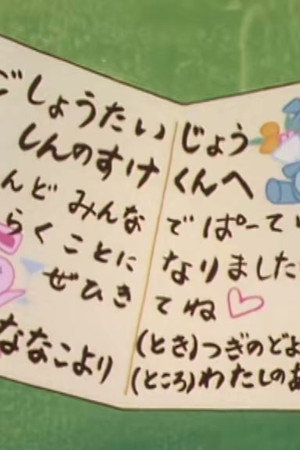 ごしょうたいじょう
しんのすけくんへ
んど みんなでぱーてぃ
らくことになりました
ぜひきてね♡
ななこより
(とき)つぎのどよ
(ところ)わたしのあ